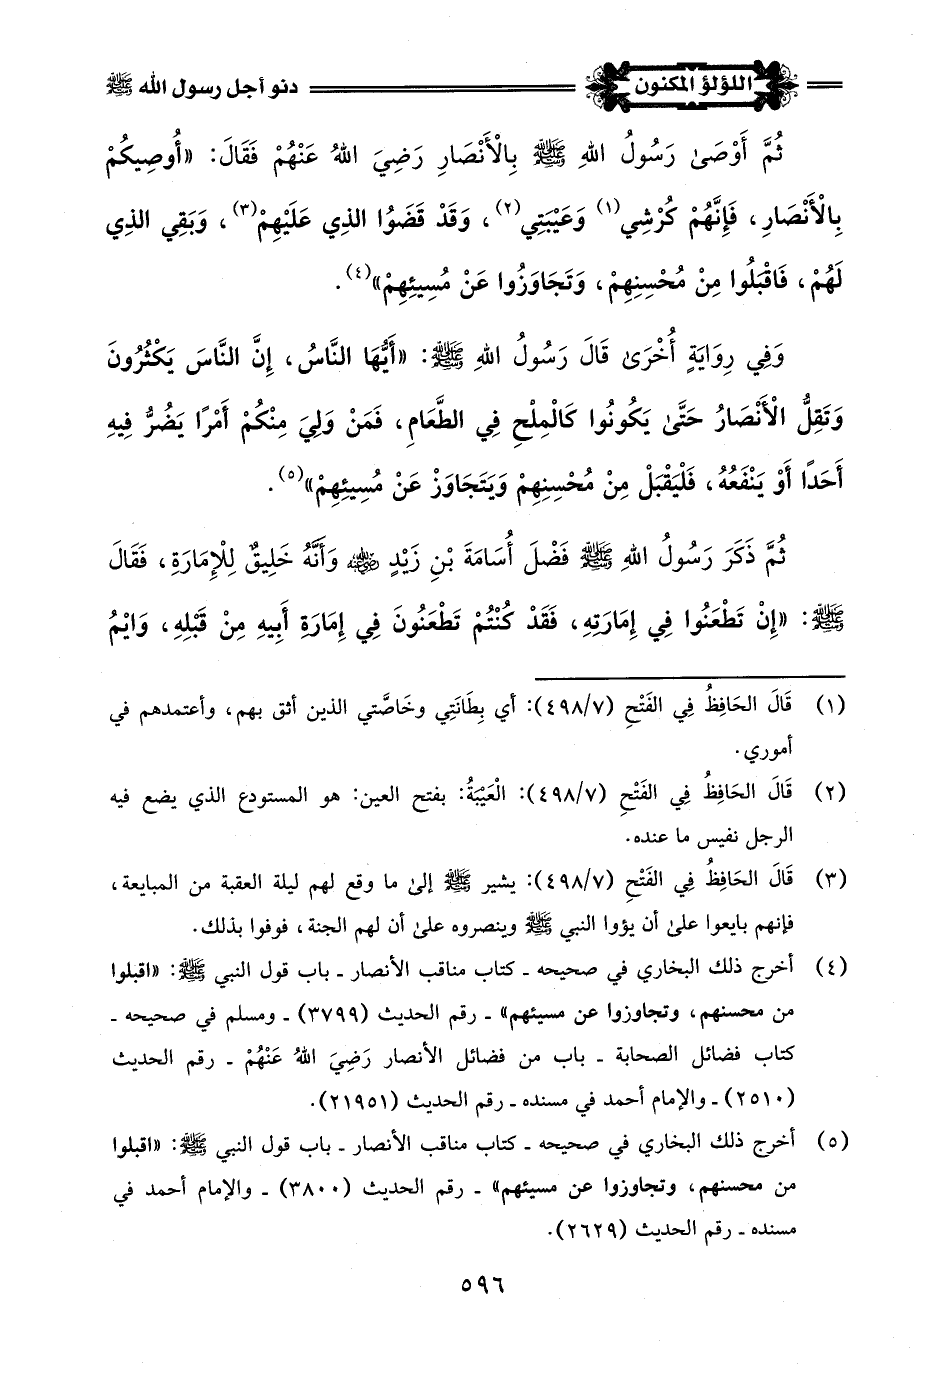 اللؤلؤ المكنون
دنو أجل رسول الله ﷺ
ثُمَّ أَوْصَىٰ رَسُولُ اللهِ ﷺ بِالْأَنْصَارِ رَضِيَ اللهُ عَنْهُمْ فَقَالَ: «أُوصِيكُمْ
بِالْأَنْصَارِ، فَإِنَّهُمْ كَرْشِي(١) وَعَيْبَتِي(٢)، وَقَدْ قَضَوُا الذِي عَلَيْهِمْ(٣)، وَبَقِي الذِي
لَهُمْ، فَاقْبَلُوا مِنْ مُحْسِنِهِمْ، وَتَجَاوَزُوا عَنْ مُسِيئِهِمْ»(٤).
وَفِي رِوَايَةٍ أُخْرَىٰ قَالَ رَسُولُ اللهِ ﷺ: «أَيُّهَا النَّاسُ، إِنَّ النَّاسَ يَكْثُرُونَ
وَتَقِلُّ الْأَنْصَارُ حَتَّىٰ يَكُونُوا كَالْمِلْحِ فِي الطَّعَامِ، فَمَنْ وَلِيَ مِنْكُمْ أَمْرًا يَضُرُّ فِيهِ
أَحَدًا أَوْ يَنْفَعُهُ، فَلْيَقْبَلْ مِنْ مُحْسِنِهِمْ وَيَتَجَاوَزْ عَنْ مُسِيئِهِمْ»(٥).
ثُمَّ ذَكَرَ رَسُولُ اللهِ ﷺ فَضْلَ أُسَامَةَ بْنِ زَيْدٍ رضي الله عنه وَأَنَّهُ خَلِيقٌ لِلْإِمَارَةِ، فَقَالَ
ﷺ: «إِنْ تَطْعَنُوا فِي إِمَارَتِهِ، فَقَدْ كُنْتُمْ تَطْعَنُونَ فِي إِمَارَةِ أَبِيهِ مِنْ قَبْلِهِ، وَايْمُ
(١) قَالَ الحَافِظُ فِي الفَتْحِ (٤٩٨/٧): أي بِطَانَتِي وخَاصَّتي الذين أثق بهم، وأعتمدهم في
أموري.
(٢) قَالَ الحَافِظُ فِي الفَتْحِ (٤٩٨/٧): الْعَيْبَةُ: بفتح العين: هو المستودع الذي يضع فيه
الرجل نفيس ما عنده.
(٣) قَالَ الحَافِظُ فِي الفَتْحِ (٤٩٨/٧): يشير ﷺ إلىٰ ما وقع لهم ليلة العقبة من المبايعة،
فإنهم بايعوا علىٰ أن يؤوا النبي ﷺ وينصروه علىٰ أن لهم الجنة، فوفوا بذلك.
(٤) أخرج ذلك البخاري في صحيحه ـ كتاب مناقب الأنصار ـ باب قول النبي ﷺ: «اقبلوا
من محسنهم، وتجاوزوا عن مسيئهم» ـ رقم الحديث (٣٧٩٩) ـ ومسلم في صحيحه ـ
كتاب فضائل الصحابة ـ باب من فضائل الأنصار رَضِيَ اللهُ عَنْهُمْ ـ رقم الحديث
(٢٥١٠) ـ والإمام أحمد في مسنده ـ رقم الحديث (٢١٩٥١).
(٥) أخرج ذلك البخاري في صحيحه ـ كتاب مناقب الأنصار ـ باب قول النبي ﷺ: «اقبلوا
من محسنهم، وتجاوزوا عن مسيئهم» ـ رقم الحديث (٣٨٠٠) ـ والإمام أحمد في
مسنده ـ رقم الحديث (٢٦٢٩).
٥٩٦